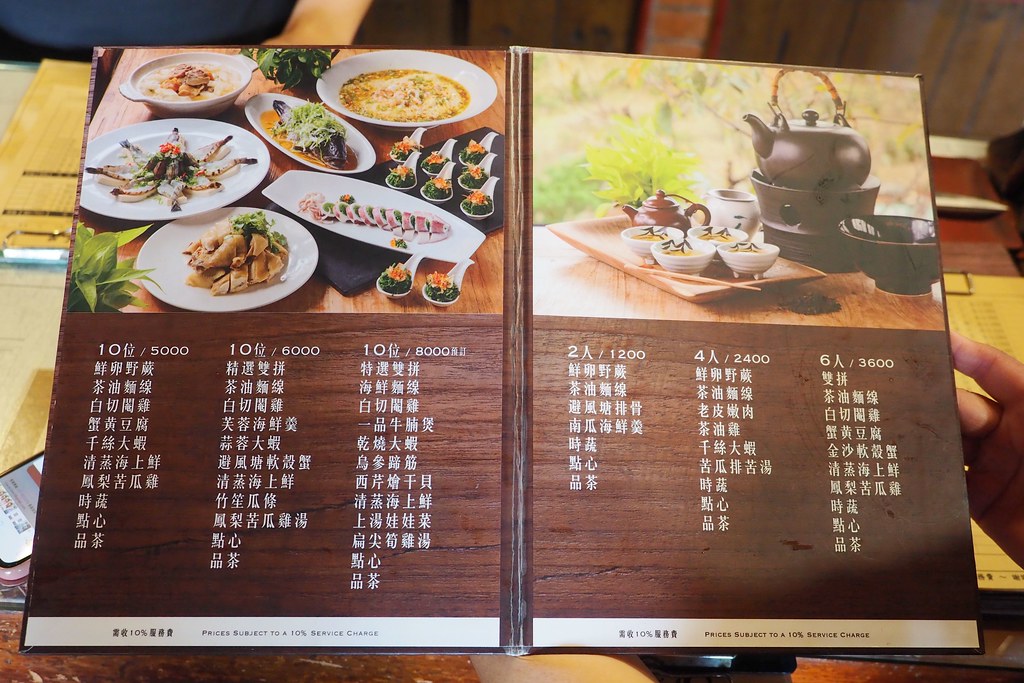 10位 / 5000
鮮卵野蕨
茶油麵線
白切閹雞
蟹黄豆腐
千絲大蝦
清蒸海上鮮
鳳梨苦瓜雞
時蔬
點心
品茶
10位 / 6000
精選雙拼
茶油麵線
白切閹雞
芙蓉海鮮羹
蒜蓉大蝦
避風塘軟殼蟹
清蒸海上鮮
竹笙瓜條
鳳梨苦瓜雞湯
點心
品茶
10位 / 8000預訂
特選雙拼
海鮮麵線
白切閹雞
一品牛腩煲
乾燒大蝦
烏參蹄筋
西芹燴干貝
清蒸海上鮮
上湯娃娃菜
扁尖筍雞湯
點心
品茶
需收10%服務費 PRICES SUBJECT TO A 10% SERVICE CHARGE
2人 / 1200
鮮卵野蕨
茶油麵線
避風塘排骨
南瓜海鮮羹
時蔬
點心
品茶
4人 / 2400
鮮卵野蕨
茶油麵線
老皮嫩肉
茶油雞
千絲大蝦
苦瓜排苦湯
時蔬
點心
品茶
6人 / 3600
雙拼
茶油麵線
白切閹雞
蟹黄豆腐
金沙軟殼蟹
清蒸海上鮮
鳳梨苦瓜雞
時蔬
點心
品茶
需收10%服務費 PRICES SUBJECT TO A 10% SERVICE CHARGE